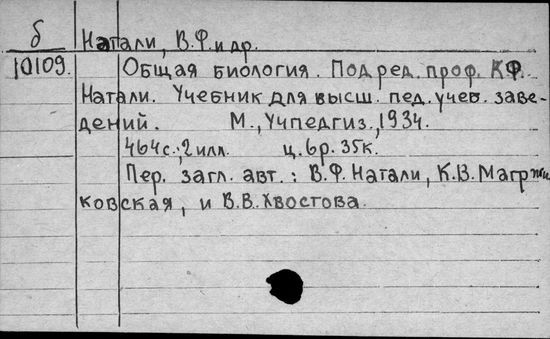 б Натали, В.Ф. и др.
10109. Общая биология. Под ред. проф. В.Ф.
Натали. Учебник для высш. пед. учеб. заве-
дений. М., Учпедгиз, 1934.
464 с.; 2 илл. ц. 6 р. 35 к.
Пер. загл. авт.: В.Ф. Натали, К.В. Магржи
ковская, и В.В. Хвостова.